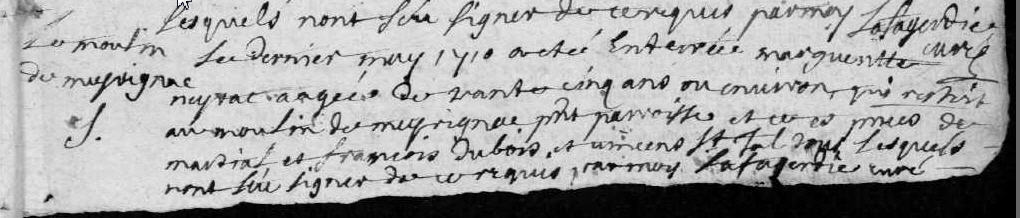 lesquels nont sceu signer de ce requis par moy Lafagerdie curé
Le moulin
de meyrignac
S.
Le dernier may 1710 a eté Enterrée margueritte
neyrac aagée de trante cinq ans ou environ, qui
au moulin de meyrignac pnt parroisse et ce es pnces de
martial et françois dubois, et vincens tous lesquels
nont sceu signer de ce requis par moy Lafagerdie curé